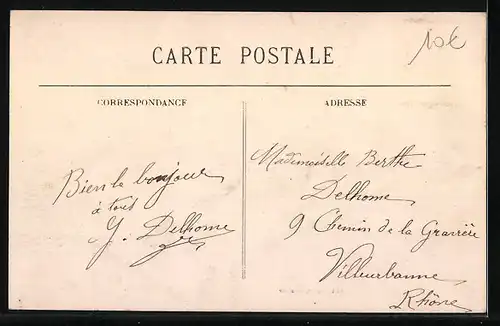 CARTE POSTALE
10€
CORRESPONDANCE
ADRESSE
Bien le bonjour
à tous
Y. Delhome
Mademoiselle Berthe
Delhome
9 Chemin de la Gravière
Villeurbanne
Rhône